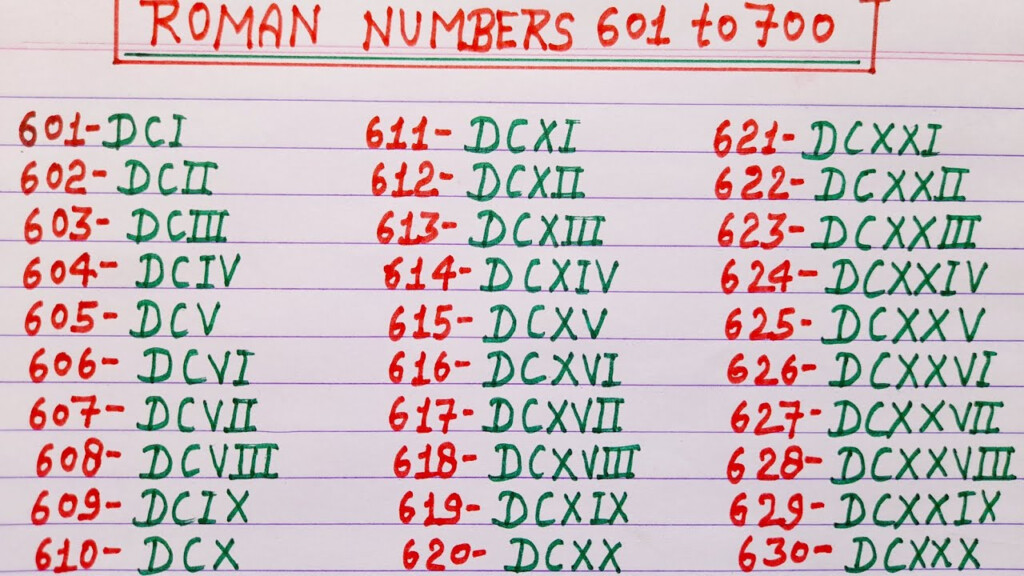 ROMAN NUMBERS 601 to 700
601- DCI 611- DCXI 621- DCXXI
602- DCII 612- DCXII 622- DCXXII
603- DCIII 613- DCXIII 623- DCXXIII
604- DCIV 614- DCXIV 624- DCXXIV
605- DCV 615- DCXV 625- DCXXV
606- DCVI 616- DCXVI 626- DCXXVI
607- DCVII 617- DCXVII 627- DCXXVII
608- DCVIII 618- DCXVIII 628- DCXXVIII
609- DCIX 619- DCXIX 629- DCXXIX
610- DCX 620- DCXX 630- DCXXX